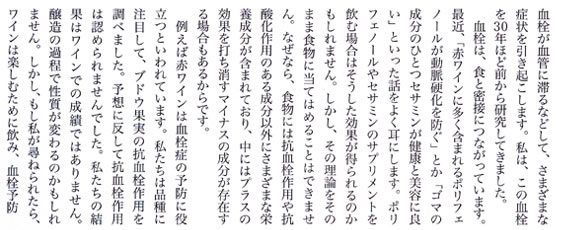 血栓が血管に滞るなどして、さまざまな
症状を引き起こします。私は、この血栓
を30年ほど前から研究してきました。
　血栓は、食と密接につながっています。
最近、「赤ワインに多く含まれるポリフェ
ノールが動脈硬化を防ぐ」とか「ゴマの
成分のひとつセサミンが健康と美容に良
い」といった話をよく耳にします。ポリ
フェノールやセサミンのサプリメントを
飲む場合はそうした効果が得られるのか
もしれません。しかし、その理論をその
まま食物に当てはめることはできませ
ん。なぜなら、食物には抗血栓作用や抗
酸化作用のある成分以外にさまざまな栄
養成分が含まれており、中にはプラスの
効果を打ち消すマイナスの成分が存在す
る場合もあるからです。
　例えば赤ワインは血栓症の予防に役
立つといわれています。私たちは品種に
注目して、ブドウ果実の抗血栓作用を
調べました。予想に反して抗血栓作用
は認められませんでした。私たちの結
果はワインでの成績ではありません。
醸造の過程で性質が変わるのかもしれ
ません。しかし、もし私が尋ねられたら、
ワインは楽しむために飲み、血栓予防